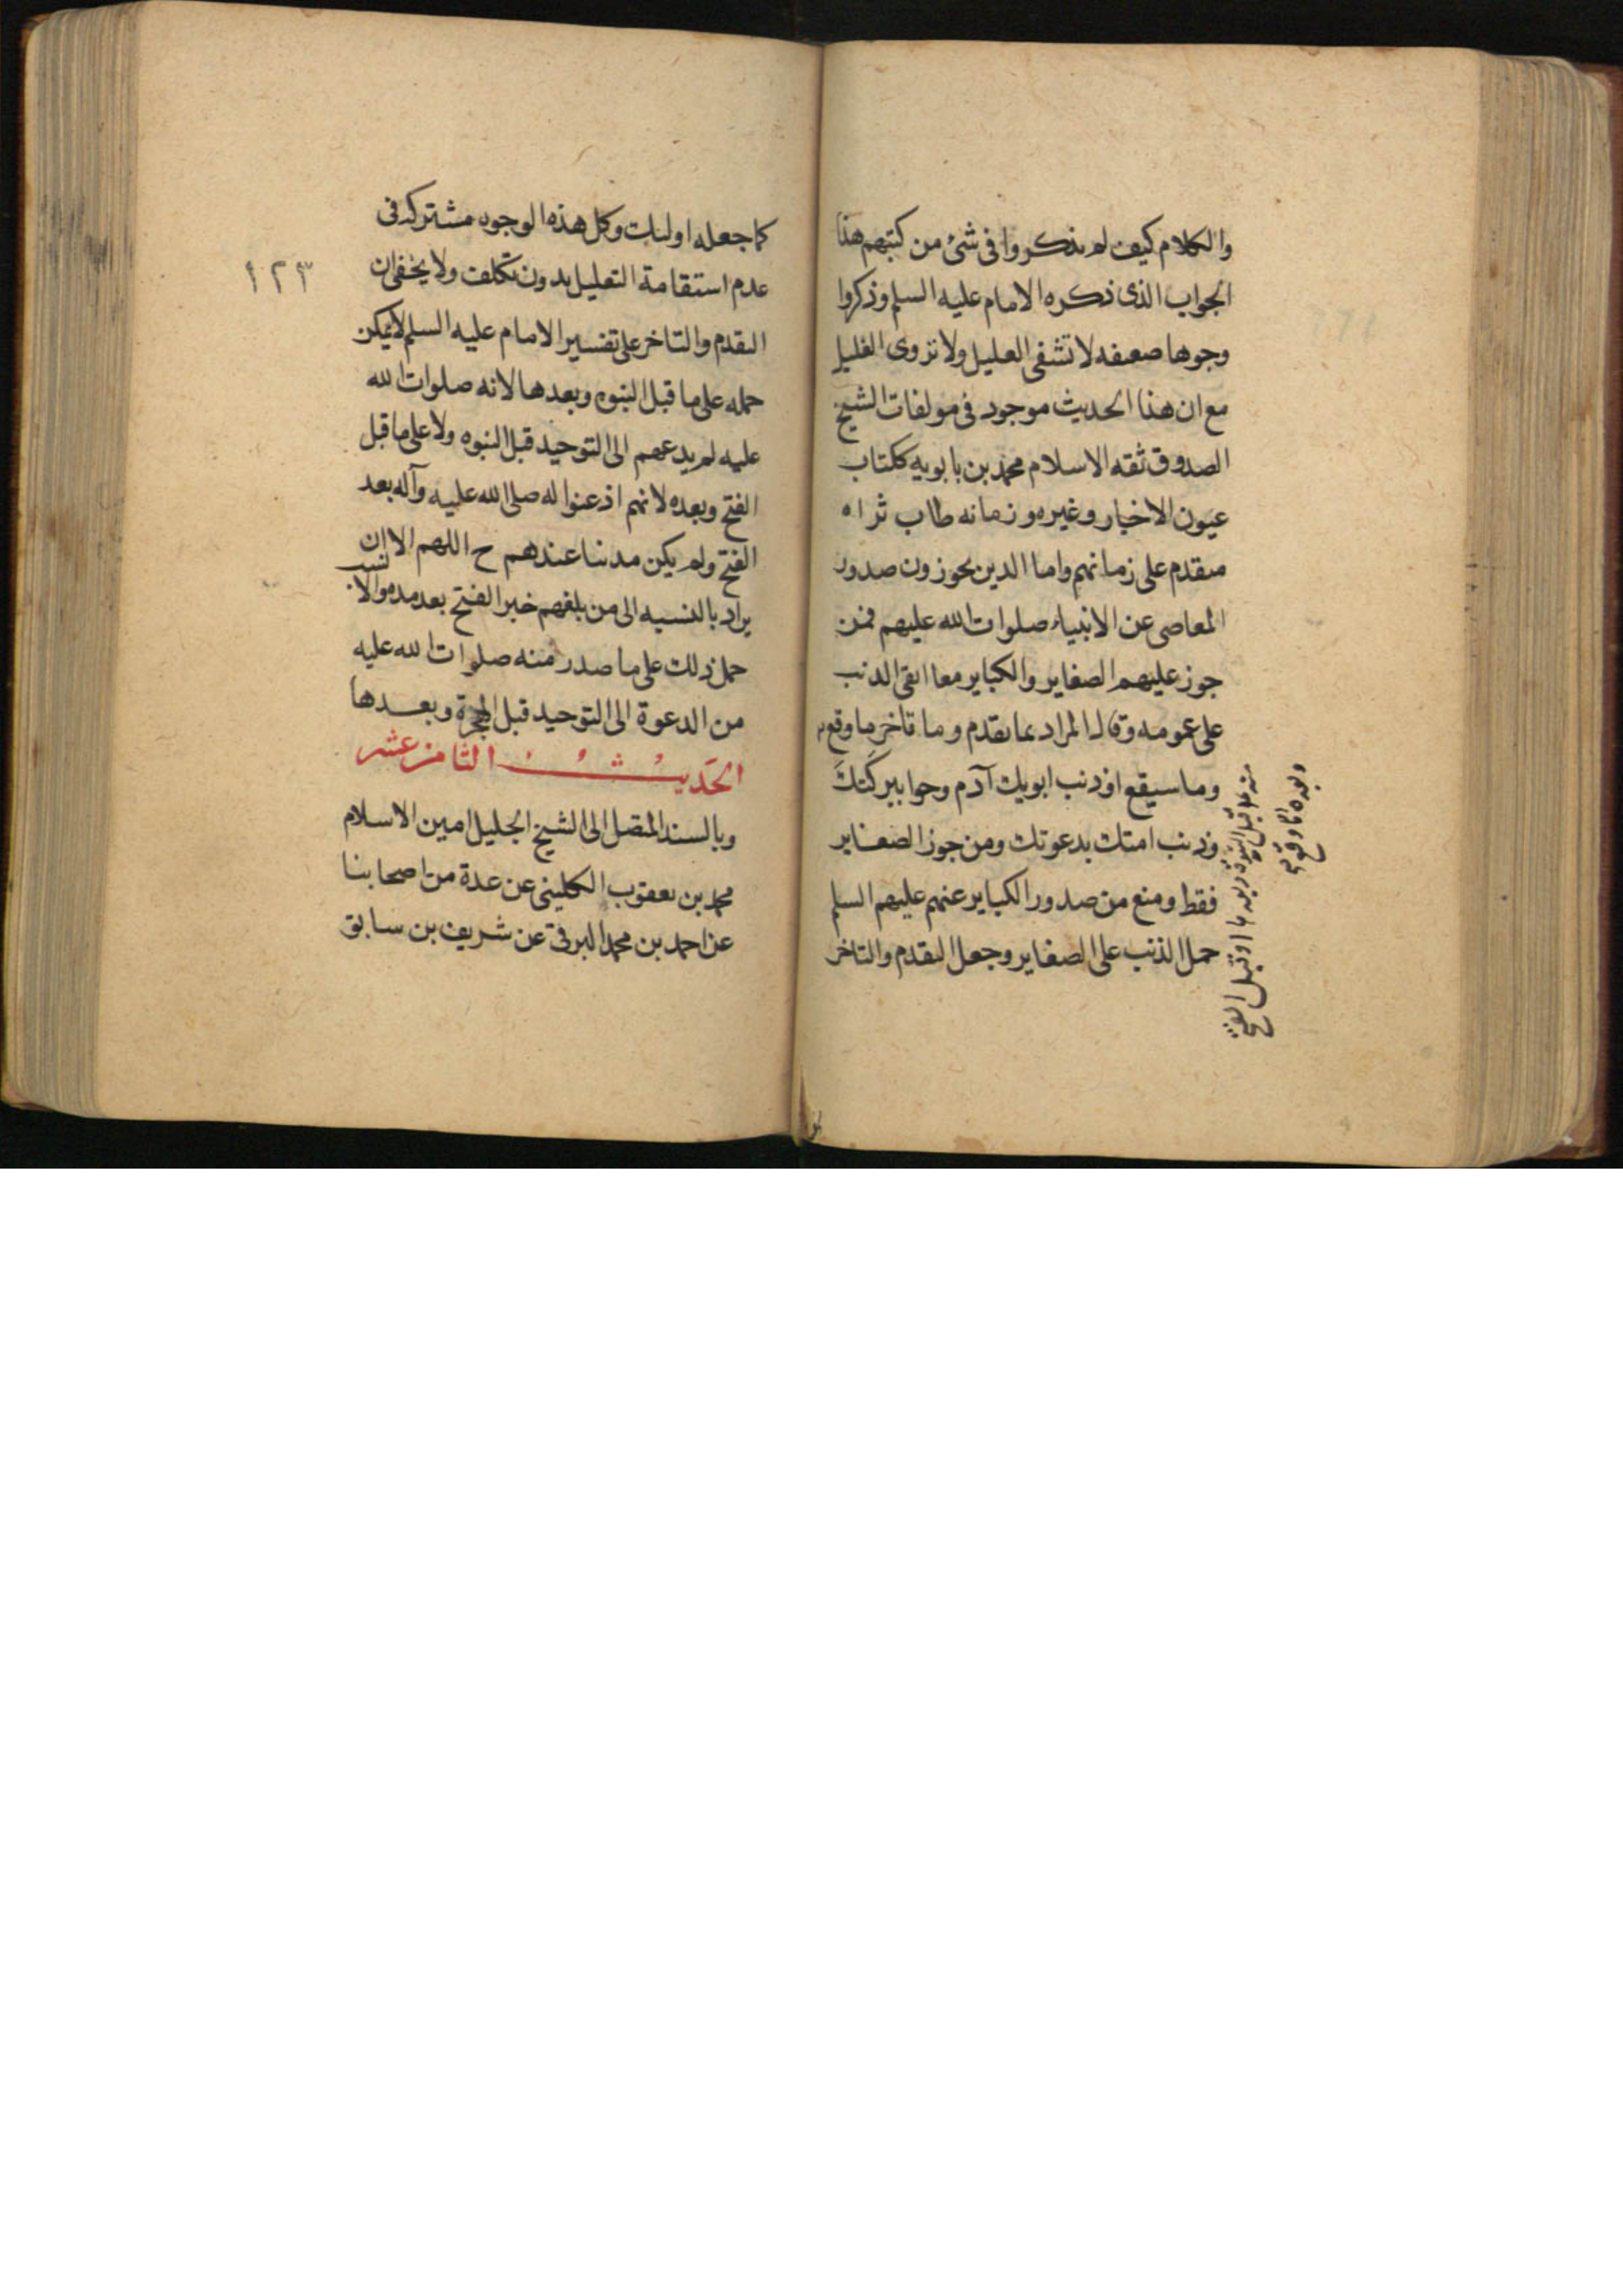 والكلام كيف لم يذكروا فى شئ من كتبهم هذا
الجواب الذى ذكره الامام عليه السلم وذكروا
وجوها ضعيفه لا تشفى العليل ولا تروى الغليل
مع ان هذا الحديث موجود فى مولفات الشيخ
الصدوق ثقه الاسلام محمد بن بابويه ككتاب
عيون الاخبار وغيره وزمانه طاب ثراه
متقدم على زمانهم واما الذين يجوزون صدور
المعاصى عن الانبياء صلوات الله عليهم فمن
جوز عليهم الصغاير والكباير معا ابقى الذنب
على عمومه وقال المراد بما تقدم وما تاخر ما وقع
وما سيقع او ذنب ابويك آدم وحوا ببركتك
وذنب امتك بدعوتك ومن جوز الصغاير
فقط ومنع من صدور الكباير عنهم عليهم السلم
حمل الذنب على الصغاير وجعل التقدم والتاخر
قبل النبوة وبعدها او قبل الفتح
وبعده
كما جعله اولئك وكل هذه الوجوه مشتركه فى
عدم استقامة التعليل بدون تكلف ولا يخفى ان
١٢٣
التقدم والتاخر على تفسير الامام عليه السلم لا يمكن
حمله على ما قبل النبوه وبعدها لانه صلوات الله
عليه لم يدعهم الى التوحيد قبل النبوه ولا على ما قبل
الفتح وبعده لانهم اذعنوا له صلى الله عليه وآله بعد
الفتح ولم يكن مذنبا عندهم ح اللهم الا ان
يراد بالنسبه الى من بلغهم خبر الفتح بعد مده والانسب
حمل ذلك على ما صدر منه صلوات الله عليه
من الدعوة الى التوحيد قبل الهجرة وبعدها
الحديث الثامن عشر
وبالسند المتصل الى الشيخ الجليل امين الاسلام
محمد بن يعقوب الكلينى عن عدة من اصحابنا
عن احمد بن محمد البرقى عن شريف بن سابق